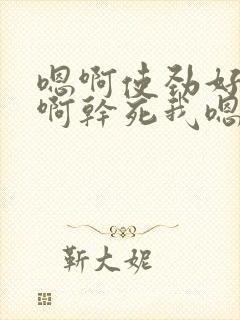 嗯啊使劲好
啊幹死我嗯
靳大妮